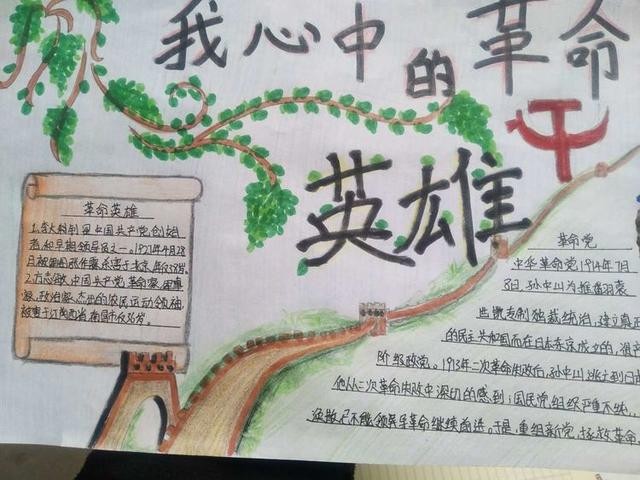 我心中的革命
英雄
革命英雄
1.李大钊别是中国共产党创始
者和早期领导人之一。1927年4月28
日被
杀害于北京,年仅38岁。
2.方志敏,中国共产党革命家,军事
家,政治家,杰出的农民运动领袖
被害于江西省南昌市仅36岁。
革命党
中华革命党1914年7月
8日,孙中山为推翻袁
世凯专制独裁统治,建立真正
的民主共和国而在日本东京成立的,资产
阶级政党。1913年二次革命失败后,孙中山逃亡到日
他从二次革命失败中深切的感到:国民党组织严重不纯,
涣散已不能领导革命继续前进。于是,重组新党,拯救革命